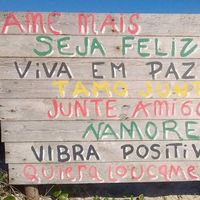 AME MAIS
SEJA FELIZ
VIVA EM PAZ
TAMO JUNT
JUNTE-AMIGO
NAMORE
VIBRA POSITIV
QUIERA LOUCAME